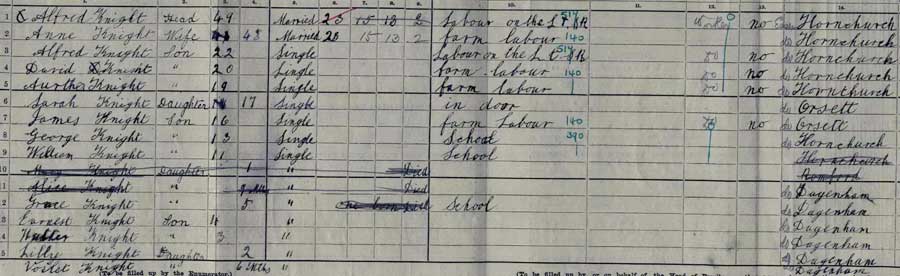 1 Alfred Knight Head 49 Married 23 15 13 2 Labour on the L T S R 514 Worker no Hornchurch
2 Anne Knight Wife 48 Married 23 15 13 2 farm labour 140 do Hornchurch
3 Alfred Knight Son 22 Single Labour on the L T S R 514 no do Hornchurch
4 David Knight " 20 Single farm labour 140 no do Hornchurch
5 Aurther Knight " 19 Single farm labour no do Hornchurch
6 Sarah Knight Daughter 17 Single in door do Orsett
7 James Knight Son 16 Single farm Labour 140 no do Orsett
8 George Knight " 13 Single School 390 do Hornchurch
9 William Knight " 11 Single School Hornchurch
10 Knight Daughter 1 " Died Romford
1 Alice Knight " Mths " Died do Dagenham
2 Grace Knight " 5 " School do Dagenham
3 Earnest Knight Son 4 " do Dagenham
4 Walter Knight " 3 " do Dagenham
5 Lillie Knight Daughter 2 " do Dagenham
Voilet Knight 6 Mths " Dagenham
(To be filled up by the Enumerator.)
(To be filled up by, or on behalf of, the Head of